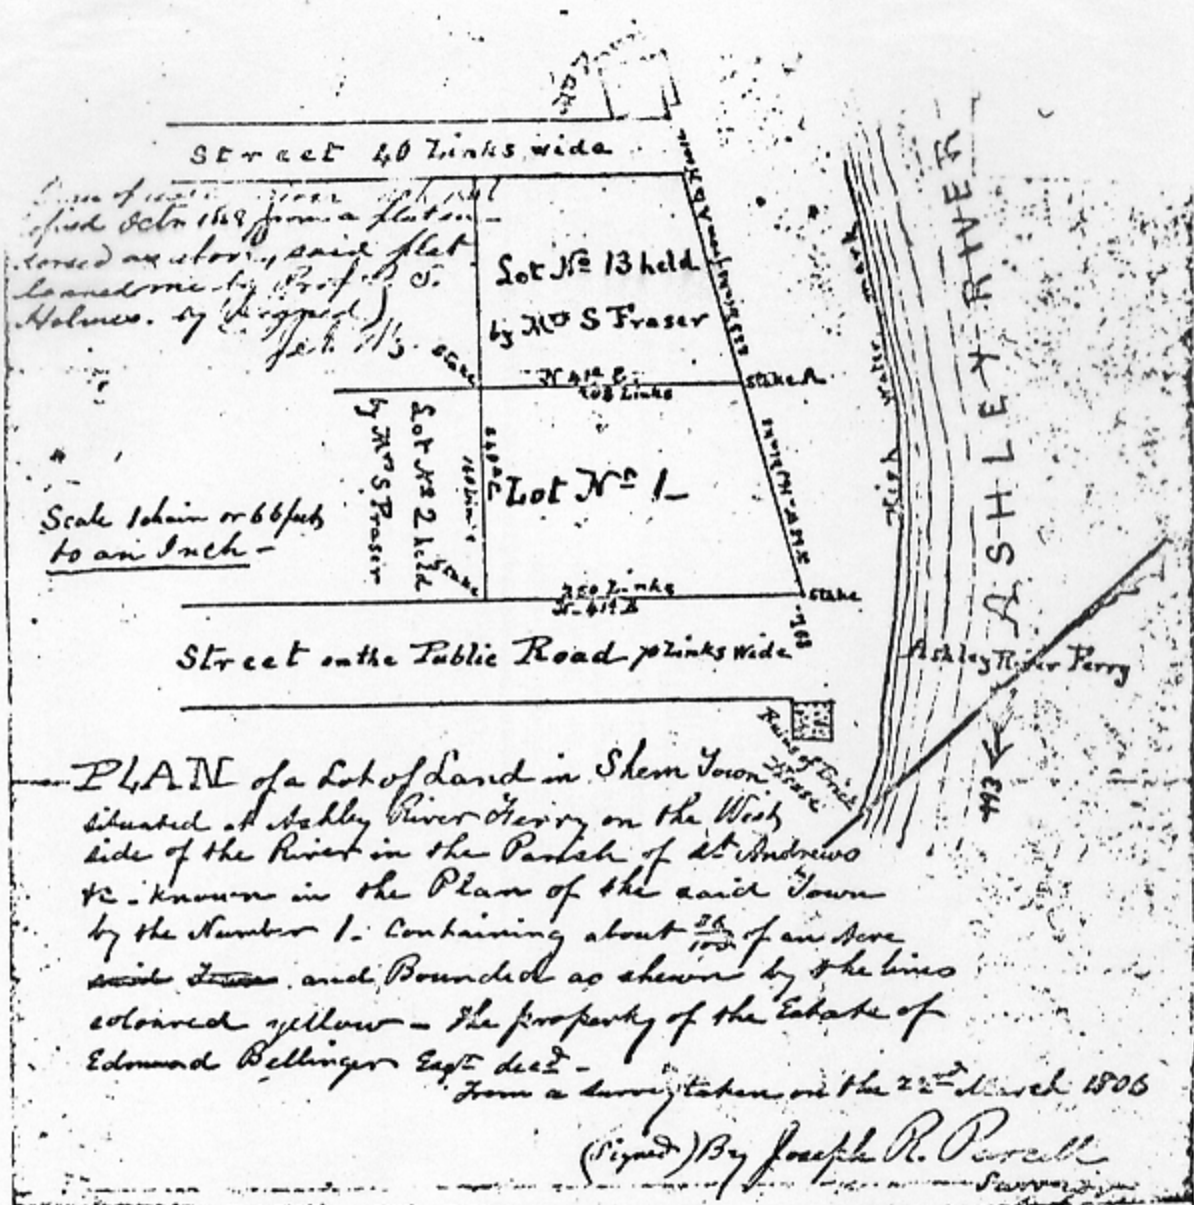 Street 40 Links wide
copied Octr 1868 from a plat en-
dorsed as above, said plat
loaned me by Prof F. S.
Holmes. by (signed)
Lot No 13 held
by Mrs S Fraser
Stake
N 41° E.
208 Links
Stake
Lot No 2 held
by Mrs S Fraser
160 Links
Lot No 1
Stake
250 Links
N 41° E
Stake
Scale 1 chain or 66 feet
to an Inch -
Street on the Public Road 70 Links Wide
Ruins of Brick
House
High Water Mark
ASHLEY RIVER
Ashley River Ferry
PLAN of a Lot of Land in Shem Town
situated at Ashley River Ferry on the West
side of the River in the Parish of St Andrews
&c. known in the Plan of the said Town
by the Number 1. Containing about 36/100 of an Acre
said Town and Bounded as shewn by the lines
coloured yellow - The property of the Estate of
Edmund Bellinger Esqr decd -
From a survey taken on the 22nd March 1806
(Signed) By Joseph R. Purcell
Surveyor